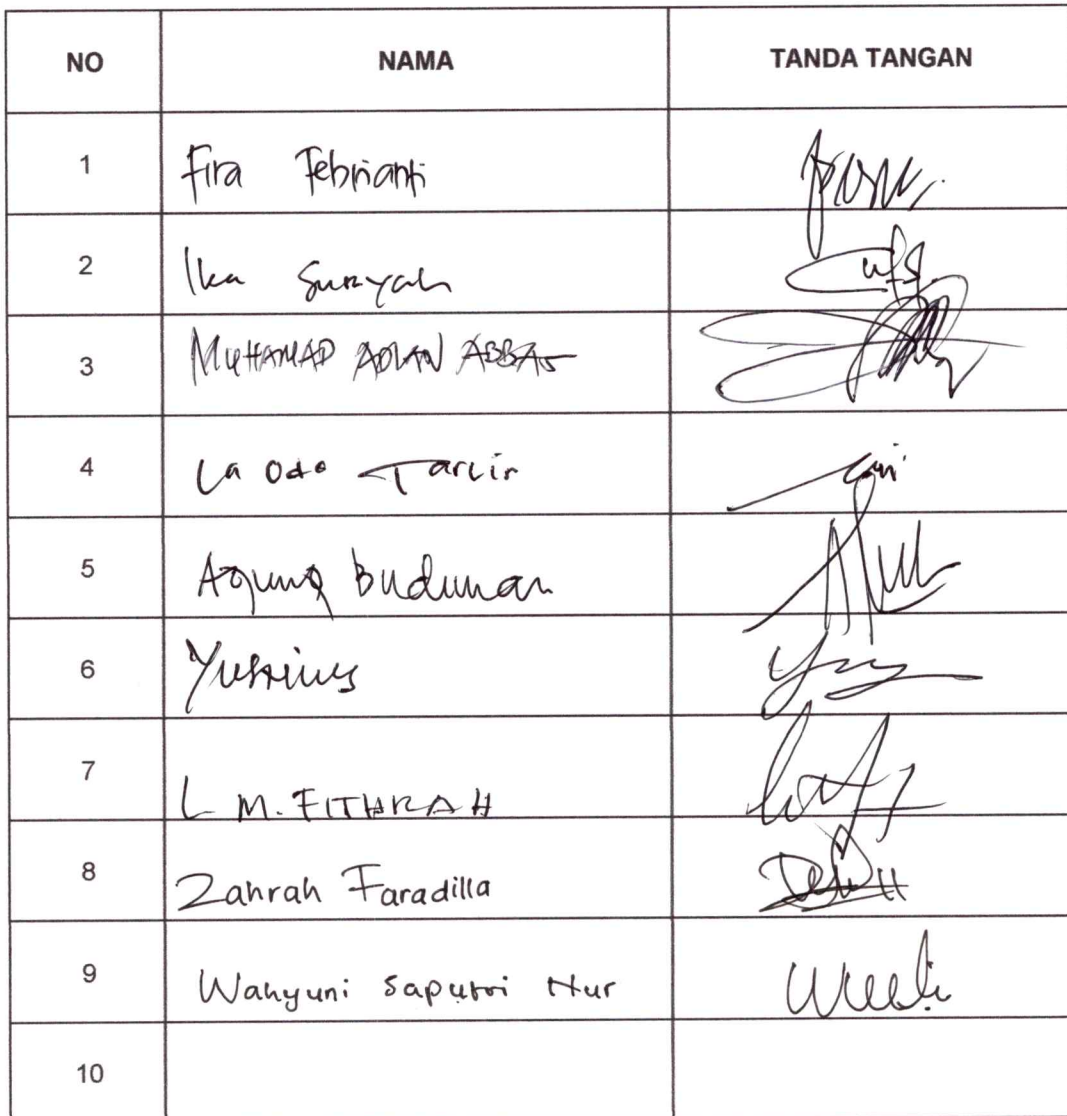 NO NAMA TANDA TANGAN
1 Fira Febrianti
2 Ika Suryah
3 MUHAMAD ADLAN ABBAS
4 La Ode Tarsir
5 Agung budiman
6
7 L M. FITHRAH
8 Zahrah Faradilla
9 Wahyuni Saputri Nur
10